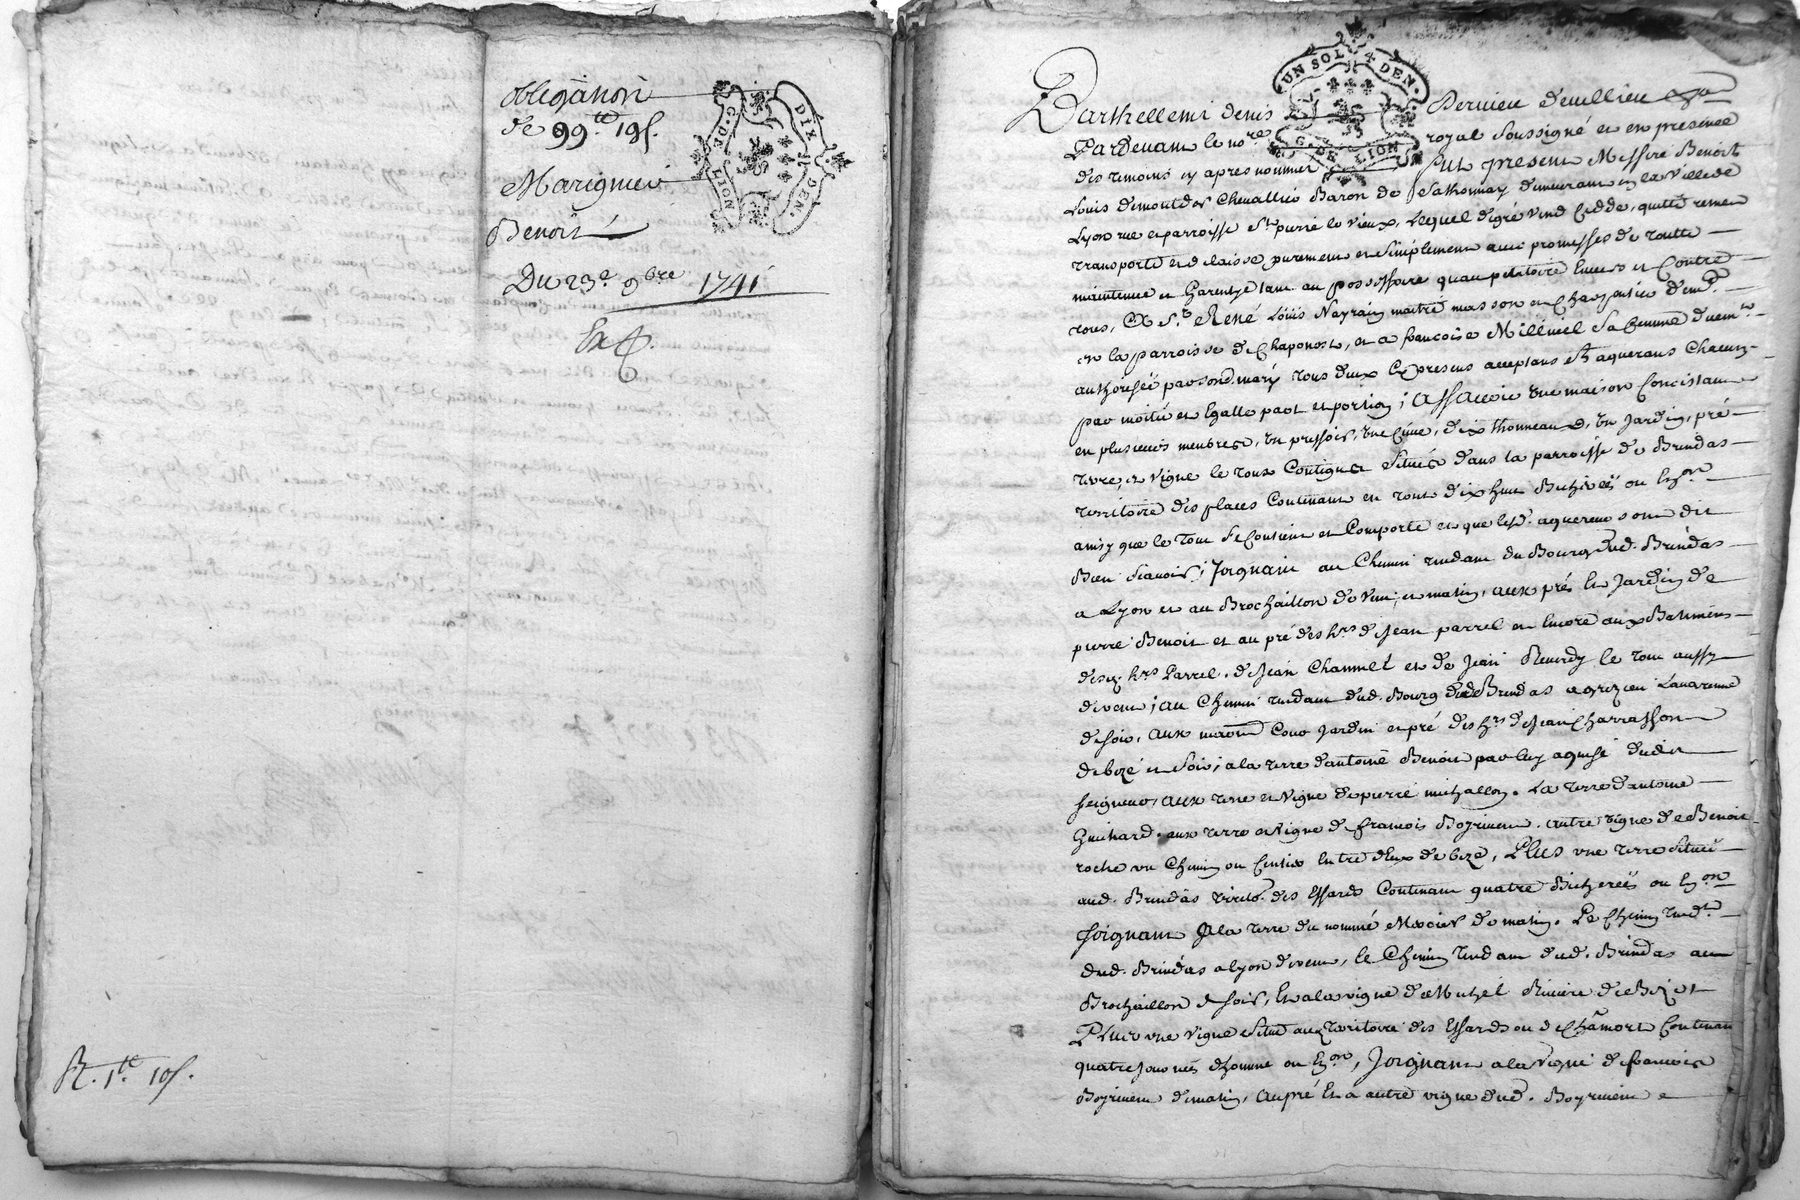 obligation
de 99ᵗᵗ 19ſ.
Marignier
Benoist
Du 23ᵉ 9bre 1741
R. 1ᵗᵗ 10ſ.
G. DE LION
DIX DEN.
UN SOL 4 DEN.
G. DE LION
Barthellemi denis
Pardevant le noʳᵉ royal soussigné et en presence
des temoins cy apres nommés fut present Messire Benoit
Louis demontdor Chevallier Baron de Sathonnay demeurant en la Ville de
Lyon rue et parroisse St pierre le vieux, lequel degré vend cedde, quitte remet
transporte et delaisse purement et simplement avec promesses de toutte
maintenue et garentye tant au possessoire quau petitoire envers et Contre
tous, A Sʳ René Louis Nayrain maitre masson et Charpentier
en la parroisse de Chaponost, et a francoise Milleviel sa femme
authorisée par sond. mary tous deux Cy presens acceptans et aquerans Chacun
par moitié et Egalle part et portion; assavoir une maison Concistant
en plusieurs membres, un pressoir, une Cuve, dix thonneaux, un Jardin, pré
terre, et vigne le tout Contigue Situés dans la parroisse de Brindas
territoire des places Contenant en tout dix huit Bicherées ou Enon
ainsy que le tout Se Contient et Comporte et que lesd. aquereurs ont dit
Bien scavoir, Joignant au Chemin tendant du Bourg dud. Brindas
a Lyon et au Brochaillon de vent et matin, aux prés et Jardin de
pierre Benoit et au pré des hrs de Jean parrel et Encore aux Batimens
desd. hrs Parrel, de Jean Chammel et de Jean Reverdy le tout aussy
de vent; au Chemin tendant dud. Bourg de Brindas a grezieu Lavarenne
de soir, aux maison Cour Jardin et pré des hrs de Jean Charrasson
de bize et soir; a la terre d'antoine Benoit par luy aquise dudit
seigneur, aux terre et vigne de pierre michallon. La terre d'antoine
Guichard, aux terre et vigne de francois Boyrivent, autre vigne de Benoit
roche un Chemin ou Sentier Entre deux de bize, Plus une terre située
aud. Brindas territ. des Essards Contenant quatre Bicherées ou Enon
Joignant a la terre du nommé Mercier de matin, Le Chemin tendt
dud. Brindas a lyon de vent, le Chemin tendant dud. Brindas au
Brochaillon de soir, Et a la vigne de Michel Riviere de Bize
Plus une vigne Située aux territoire des Essards ou de Chamort Contenant
quatre journées d'homme ou Enon, Joignant a la vigne de francois
Boyrivent de matin, au pré Et a autre vigne dud. Boyrivent